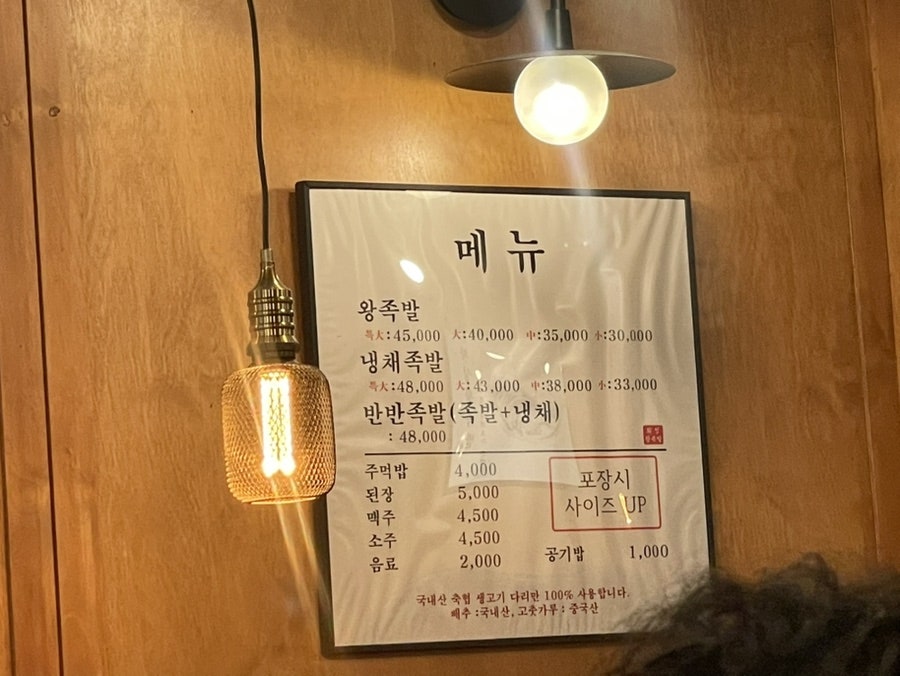 메뉴
왕족발
특大:45,000 大:40,000 中:35,000 小:30,000
냉채족발
특大:48,000 大:43,000 中:38,000 小:33,000
반반족발(족발+냉채)
:48,000
주먹밥 4,000
된장 5,000
맥주 4,500
소주 4,500
음료 2,000
포장시
사이즈 UP
공기밥 1,000
국내산 축협 생고기 다리만 100% 사용합니다.
배추 :국내산, 고춧가루 : 중국산